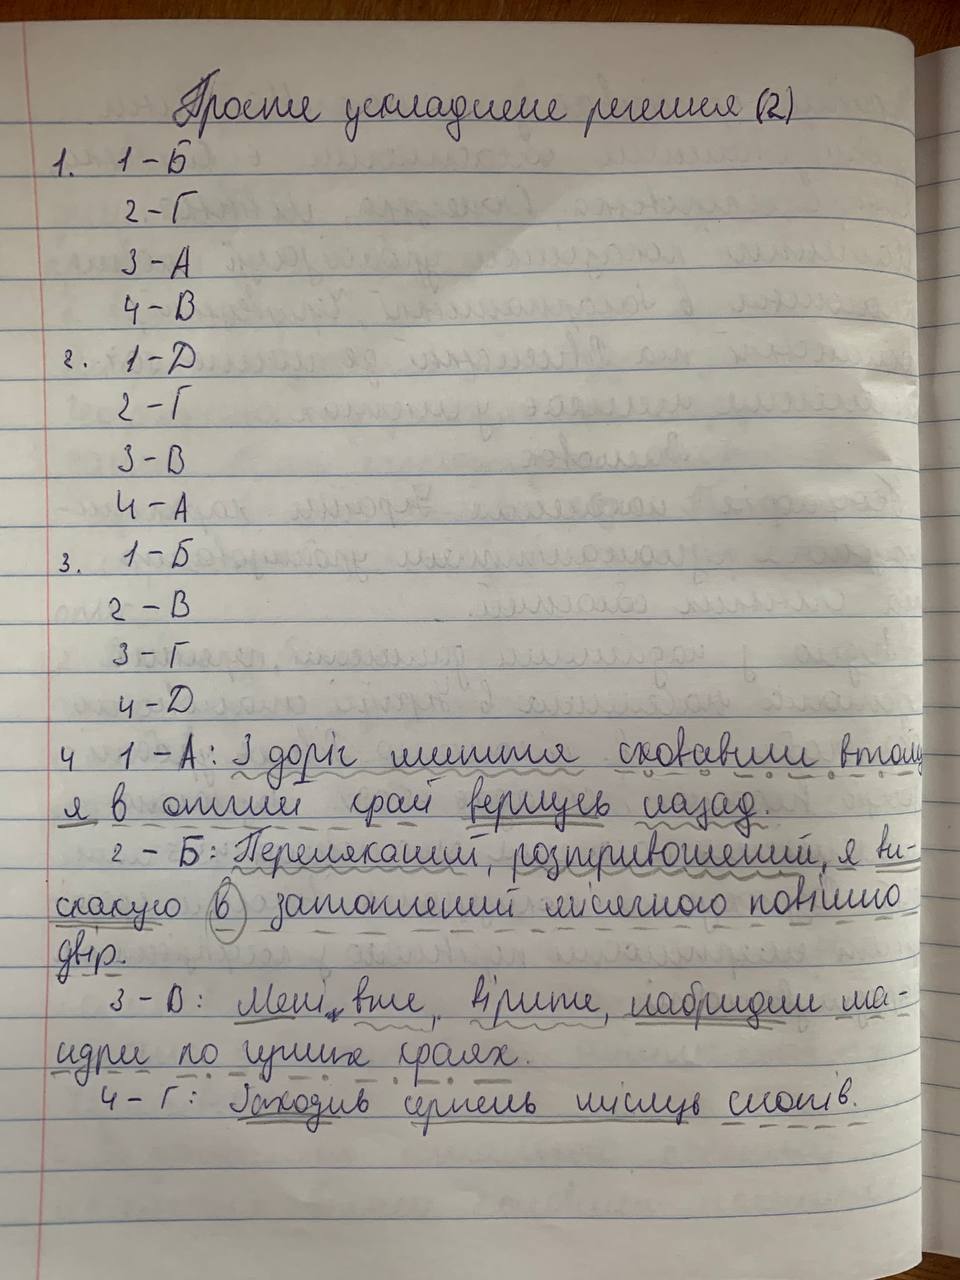 Просте ускладнене речення (2)
1. 1 - Б
2 - Г
3 - А
4 - В
2. 1 - Д
2 - Г
3 - В
4 - А
3. 1 - Б
2 - В
3 - Г
4 - Д
4 1 - А: З доріг життя сховавши втому
я в отчий край вернусь назад.
2 - Б: Переляканий, розтривожений, я ви-
скакую в затоплений місячного повінню
двір.
3 - В: Мені, вже, вірите, набридли ма-
ндри по чужих краях.
4 - Г: Заходив серпень місяць снопів.